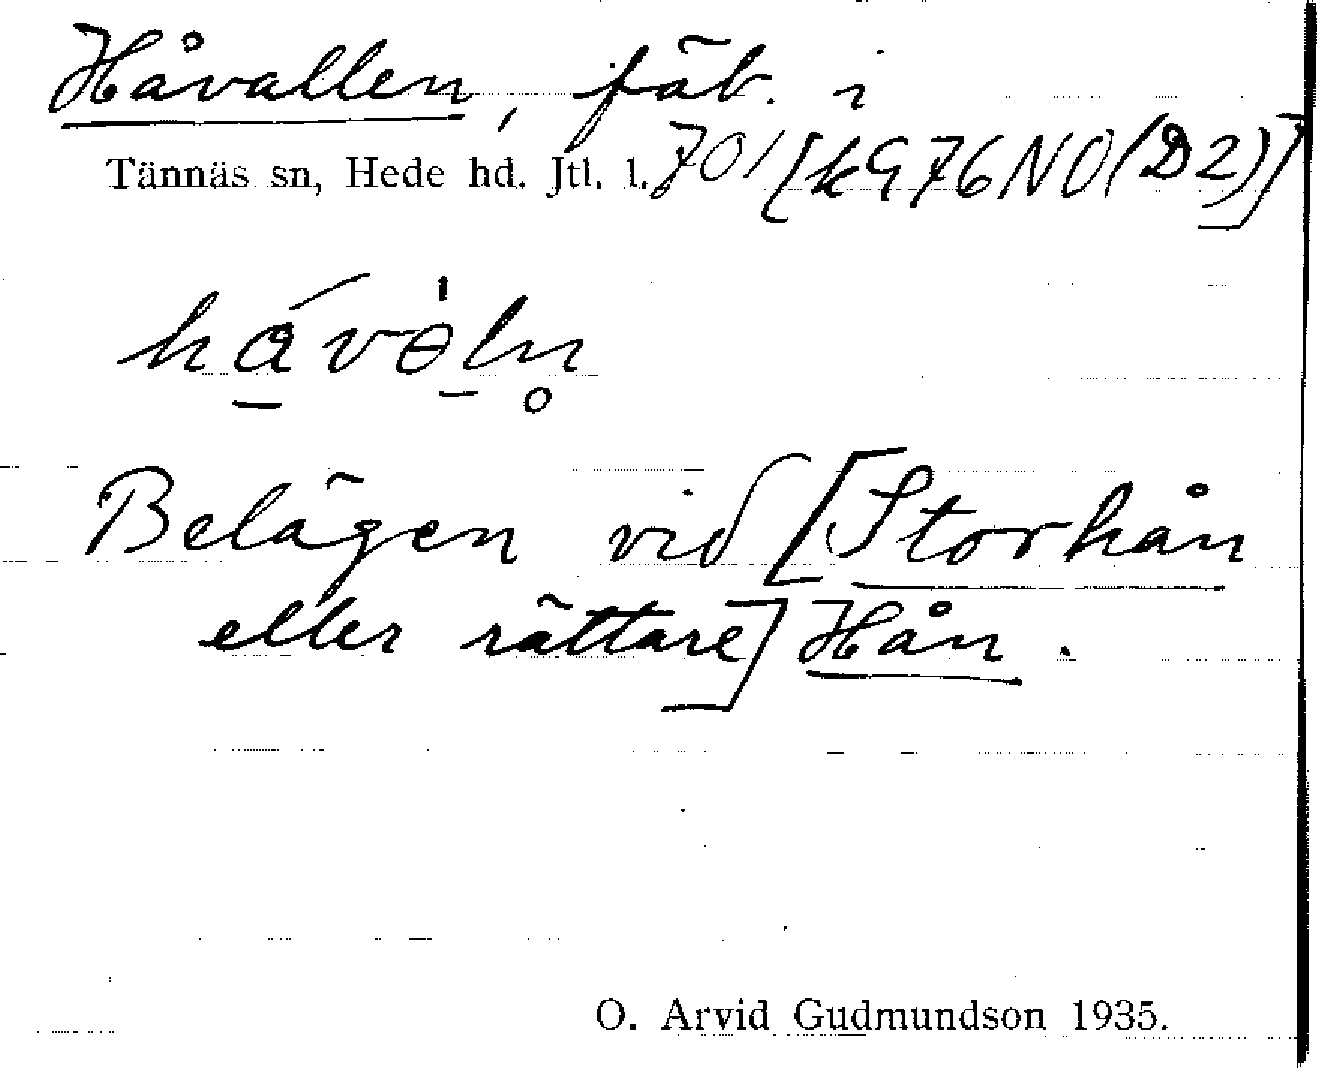 Håvallen, fäb. i
Tännäs sn, Hede hd. Jtl. l. 701 [kG76NO(D2)]
Belägen vid [Storhån
eller rättare] Hån.
O. Arvid Gudmundson 1935.